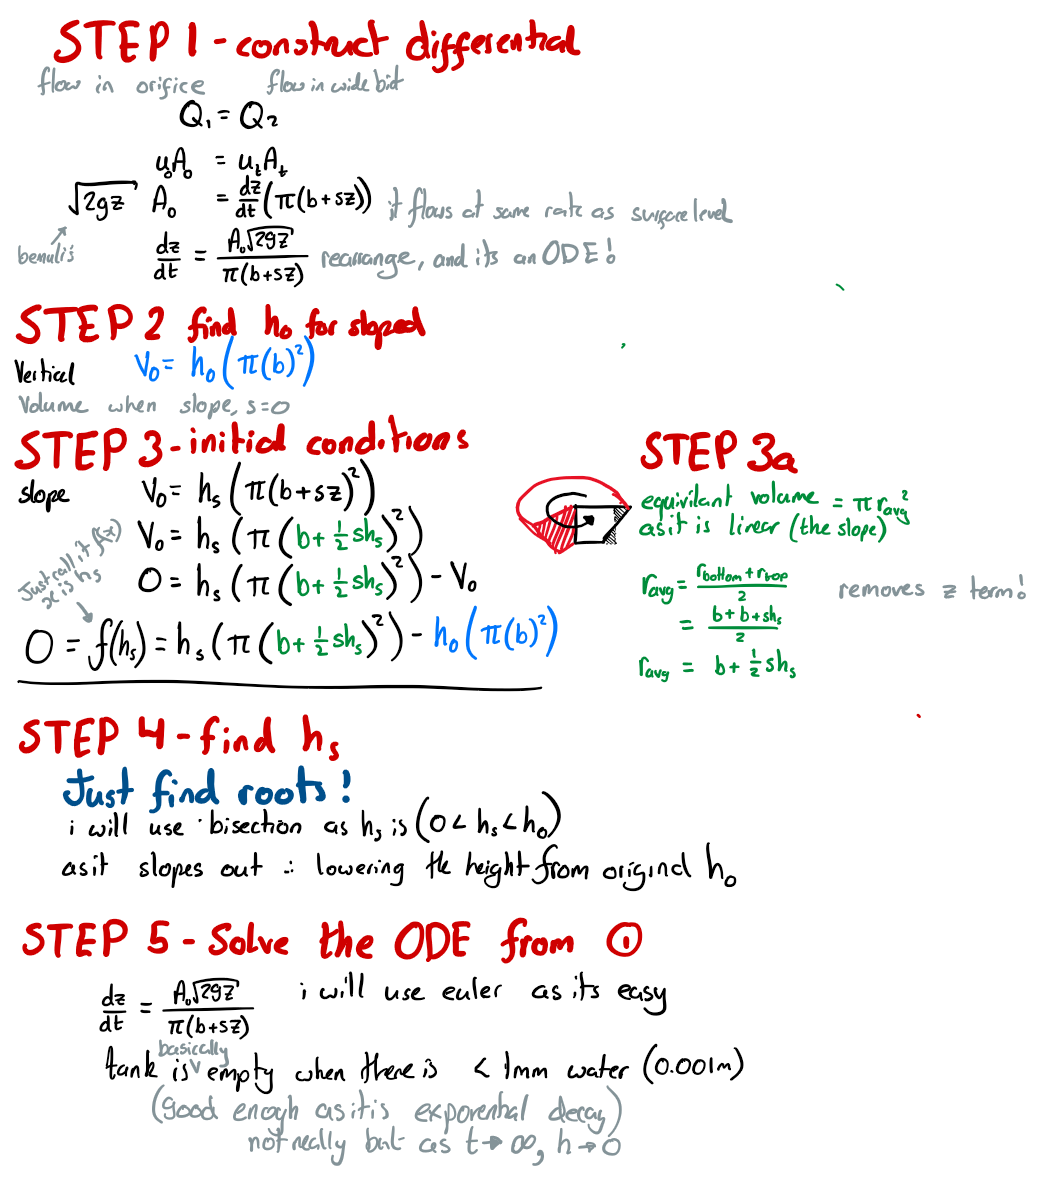 STEP 1 - construct differential
flow in orifice flow in wide bit
Q₁ = Q₂
u₀A₀ = uₜAₜ
√2gz A₀ = dz/dt (π(b+sz)) it flows at same rate as surface level
bernuli's
dz/dt = A₀√2gz / π(b+sz) rearrange, and its an ODE!
STEP 2 find h₀ for sloped
Vertical V₀ = h₀(π(b)²)
Volume when slope, s=0
STEP 3 - initial conditions
slope V₀ = hₛ(π(b+sz)²)
V₀ = hₛ(π(b+½shₛ)²)
Just call it f(x)
x is hₛ
0 = hₛ(π(b+½shₛ)²) - V₀
0 = f(hₛ) = hₛ(π(b+½shₛ)²) - h₀(π(b)²)
STEP 3a
equivilant volume = π r_avg²
as it is linear (the slope)
r_avg = r_bottom + r_top / 2
= b + b + shₛ / 2
r_avg = b + ½shₛ
removes z term!
STEP 4 - find hₛ
Just find roots!
i will use bisection as hₛ is (0 < hₛ < h₀)
as it slopes out ∴ lowering the height from original h₀
STEP 5 - Solve the ODE from ①
dz/dt = A₀√2gz / π(b+sz) i will use euler as its easy
tank is basically empty when there is < 1mm water (0.001m)
(good enogh as it is exponential decay)
not really but as t→∞, h→0